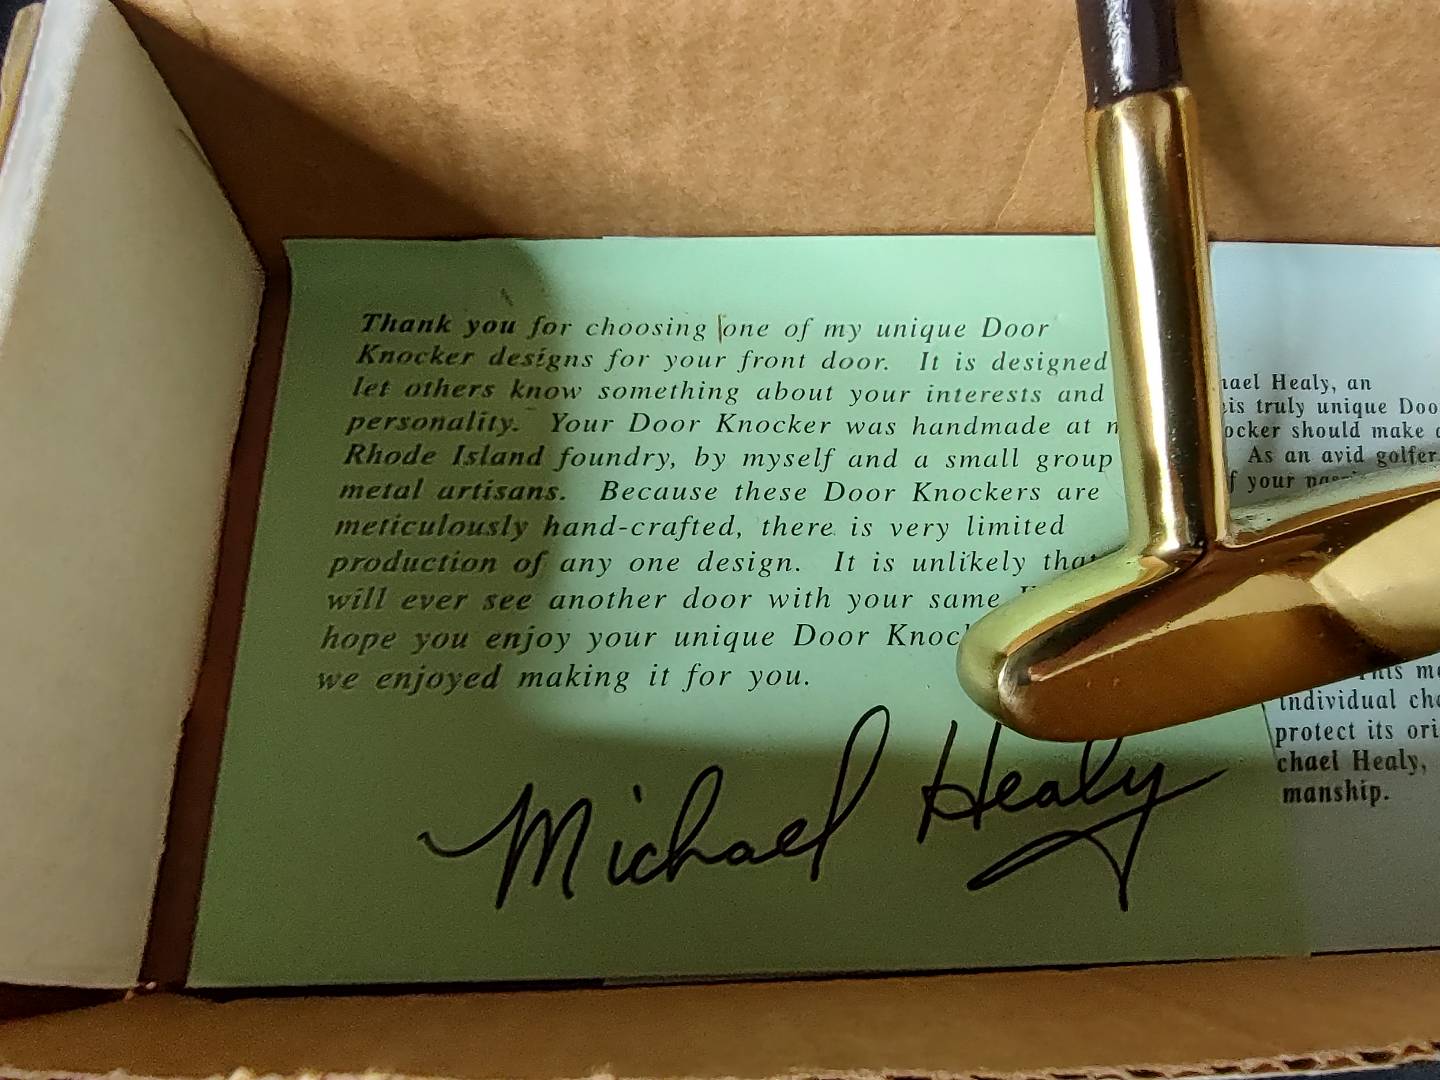 Thank you for choosing one of my unique Door
Knocker designs for your front door. It is designed
let others know something about your interests and
personality. Your Door Knocker was handmade at
Rhode Island foundry, by myself and a small group
metal artisans. Because these Door Knockers are
meticulously hand-crafted, there is very limited
production of any one design. It is unlikely that
will ever see another door with your same
hope you enjoy your unique Door Knoc
we enjoyed making it for you.
Michael Healy
hael Healy, an
is truly unique Doo
ocker should make
As an avid golfer
f your
This m
individual cha
protect its ori
chael Healy,
manship.